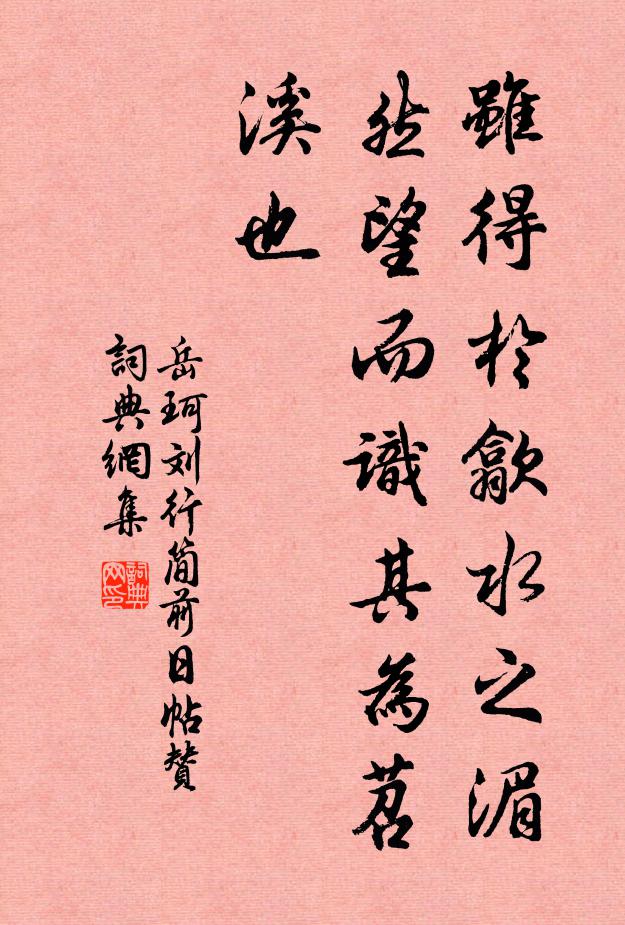 雖得於歙水之湄
然望而識其為苕
溪也
岳珂刘行简前日帖贊
詞典網集
詞典网印